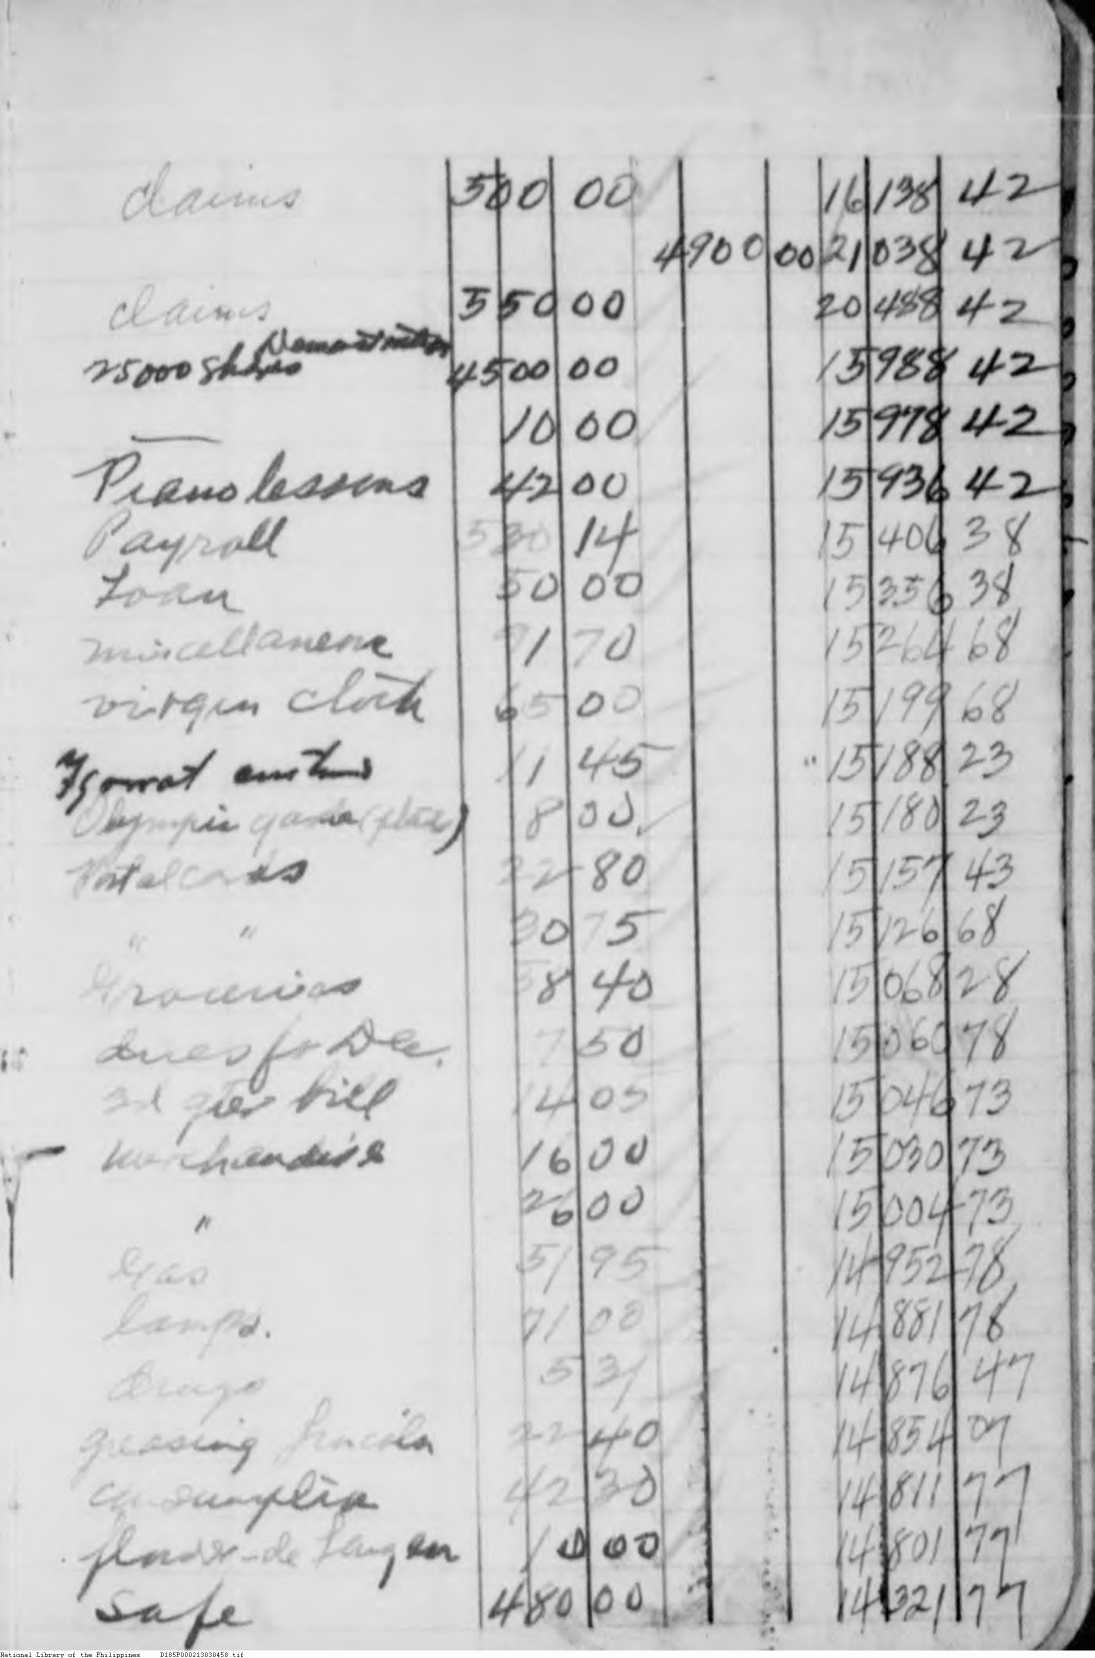 claims 500 00 16 138 42
4900 00 21 038 42
claims 550 00 20 488 42
Demonstration
25000 Shares 4500 00 15 988 42
— 10 00 15 978 42
Piano lessons 42 00 15 936 42
Payroll 530 14 15 406 38
Loan 50 00 15 356 38
miscellaneous 91 70 15 264 68
virgin cloth 65 00 15 199 68
Igorrot 11 45 15 188 23
Olympic game 8 00 15 180 23
Postal cards 22 80 15 157 43
" " 30 75 15 126 68
Groceries 58 40 15 068 28
dues 7 50 15 060 78
3d qter bill 14 05 15 046 73
merchandise 16 00 15 030 73
" 26 00 15 004 73
Gas 51 95 14 952 78
lamps. 71 00 14 881 78
Drugs 5 31 14 876 47
greasing Lincoln 22 40 14 854 07
consumption 42 30 14 811 77
flower - de 10 00 14 801 77
Safe 480 00 14 321 77
National Library of the Philippines D185P000213030458.tif